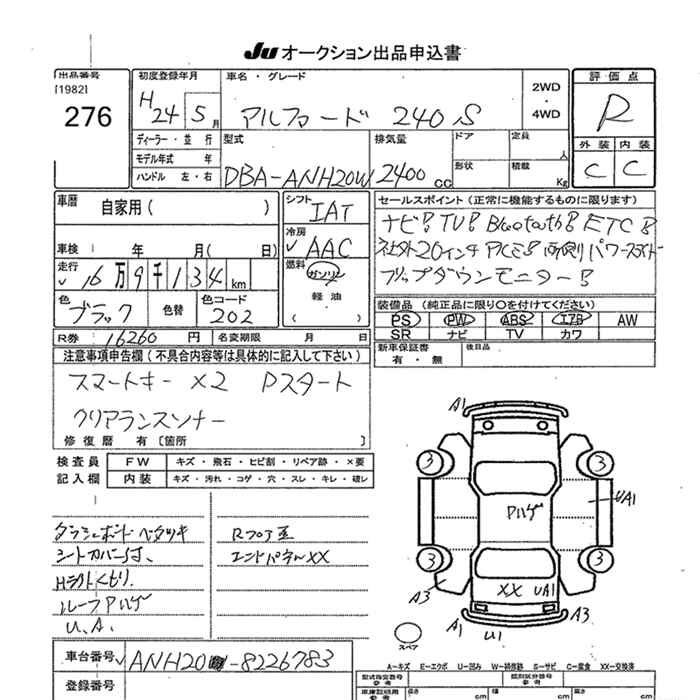 JU オークション出品申込書
出品番号 初度登録年月 車名・グレード 評価点
[1982] 276 H24 5月 アルファード 240 S 2WD・4WD R
ディーラー・並行 型式 排気量 ドア 定員 人 外装 内装
モデル年式 年 形状 積載 Kg
ハンドル 左・右 DBA-ANH20W 2400 CC C C
車歴 自家用( ) シフト IAT セールスポイント(正常に機能するものに限ります)
冷房 AAC ナビ! TV! Bluetooth! ETC!
車検 年 月(日) 社外20インチ 両側パワースライド
走行 16万9千134km 燃料 ガソリン フリップダウンモニター!
軽油
色 ブラック 色替 色コード 202 装備品(純正品に限り○を付けてください)
PS PW ABS エアB AW
R券 16260円 名変期限 月 日 SR ナビ TV カワ
注意事項申告欄(不具合内容等は具体的に記入して下さい) 新車保証書 有・無 後日品
スマートキー ×2 Pスタート
クリアランスソナー
修復歴 有〔箇所 〕
検査員 FW キズ・飛石・ヒビ割・リペア跡・×要
記入欄 内装 キズ・汚れ・コゲ・穴・スレ・キレ・破レ
A1
3 3
Pハゲ UA1
3 3
A3 XX UA1 A3
A1 U1
スペア
ダッシュボードベタツキ Rフロア歪
シートカバー付. エンドパネルXX
Hライトくもり.
ルーフPハゲ
U.A.
車台番号 ANH20-8226783
A-キズ E-エクボ U-凹み W-補修跡 S-サビ C-腐食 XX-交換済
型式指定番号 類別区分番号
登録番号 参考 参考
長さ cm 幅 cm 高さ cm